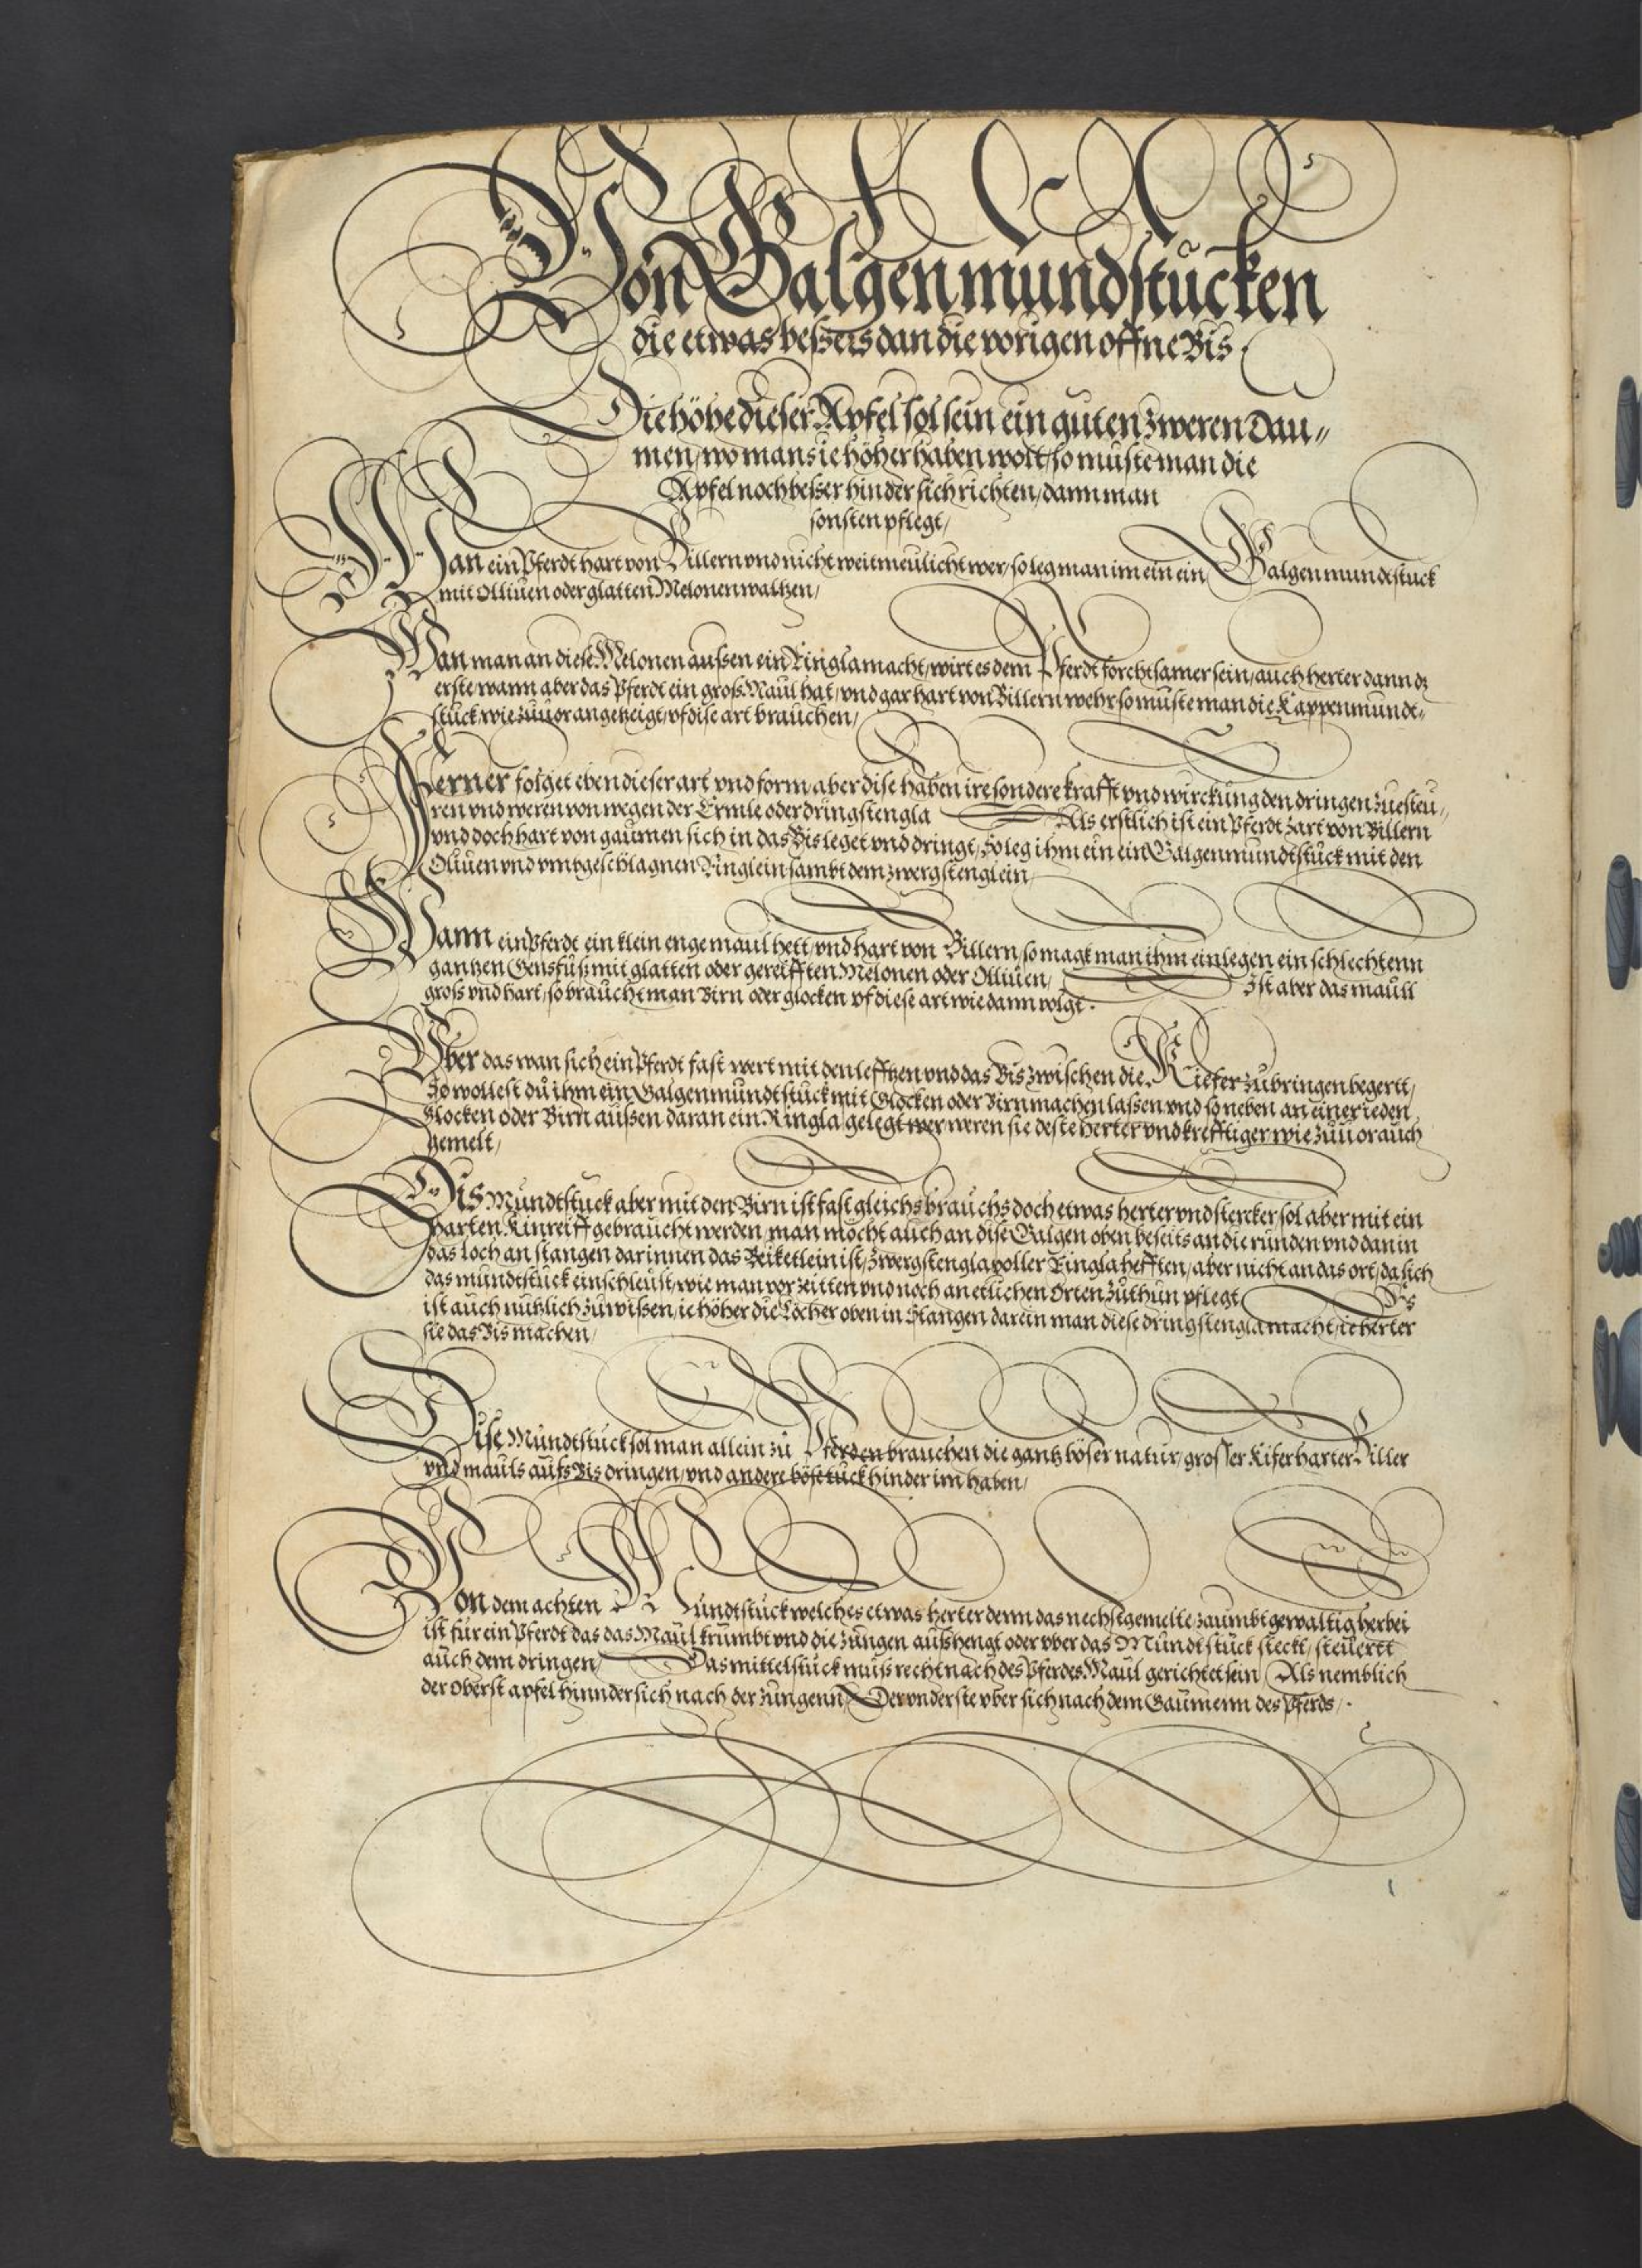 Von Galgenmundstucken
die etwas bessers dan die vorigen offne Bis.
Die höhe dieser Apfel sol sein ein guten zweren Dau„
men, wo man sie höher haben wolt, so muste man die
Apfel noch besser hinder sich richten, dann man
sonsten pflegt,
Wan ein Pferdt hart von Billern vnd nicht weitmeulicht wer, so leg man im ein ein Galgenmundtstuck
mit Olliuen oder glatten Melonen waltzen,
Wan man an diese Melonen aussen ein Ringla macht, wirt es dem Pferdt forchtsamer sein, auch herter dann dz
erste, wann aber das Pferdt ein gross Maul hat, vnd gar hart von Billern wehr, so muste man die Kappenmundt„
stuck wie zuuor angetzeigt, vf dise art brauchen,
Ferner folget eben dieser art vnd form, aber dise haben ire sondere krafft vnd wirckung den dringen zuesteu„
ren vnd weren von wegen der Ermle oder dringstengla Als erstlich ist ein Pferdt zart von Billern
vnd doch hart von gaumen sich in das Bis leget vnd dringt, So leg ihm ein ein Galgenmundtstuck mit den
Oliuen vnd vmbgeschlagnen Ringlein sambt dem zwergstenglein,
Wann ein Pferdt ein klein enge maul hett, vnd hart von Billern, so magk man ihm einlegen ein schlechtenn
gantzen Gensfuss mit glatten oder gereifften Melonen oder Olliuen, Ist aber das maull
gross vnd hart, so braucht man Birn oder glocken vf diese art wie dann volgt.
Vber das wan sich ein Pferdt fast wert mit den lefftzen vnd das Bis zwischen die Kiefer zubringen begertt,
So wollest du ihm ein Galgenmundtstuck mit Glocken oder Birn machen lassen, vnd so neben an einer ieden
Glocken oder Birn aussen daran ein Ringla gelegt wer weren sie deste herter vnd krefftiger wie zuuor auch
gemelt,
Dis Mundtstuck aber mit den Birn ist fast gleichs brauchs doch etwas herter vnd stercker sol aber mit ein
harten Kinreiff gebraucht werden, man möcht auch an dise Galgen oben beseits an die runden vnd dan in
das loch an stangen darinnen das Beiketlein ist, zwergstengla voller Ringla hefften, aber nicht an das ort, da sich
das mundtstuck einschleust, wie man vor zeitten vnd noch an etlichen orten zuthun pflegt, Es
ist auch nutzlich zuwissen, ie höher die Löcher oben in Stangen darein man diese dringstengla macht, ie herter
sie das Bis machen,
Dise Mundtstuck sol man allein zu Pferden brauchen die gantz böser natur, grosser Kifer harter Biller
vnd mauls aufs Bis dringen, vnd andere böse tuck hinder im haben,
Von dem achten Mundtstuck welches etwas herter denn das nechstgemelte, zaumbt gewaltig herbei
ist fur ein Pferdt das das Maul krumbt vnd die zungen aushengt oder vber das Mundtstuck steckt, steuertt
auch dem dringen, Das mittelstuck mus recht nach des Pferdes Maul gerichtet sein, Als nemblich
der oberst apfel hinnder sich nach der zungenn, Der vnderste vber sich nach dem Gaumenn des Pferds,.